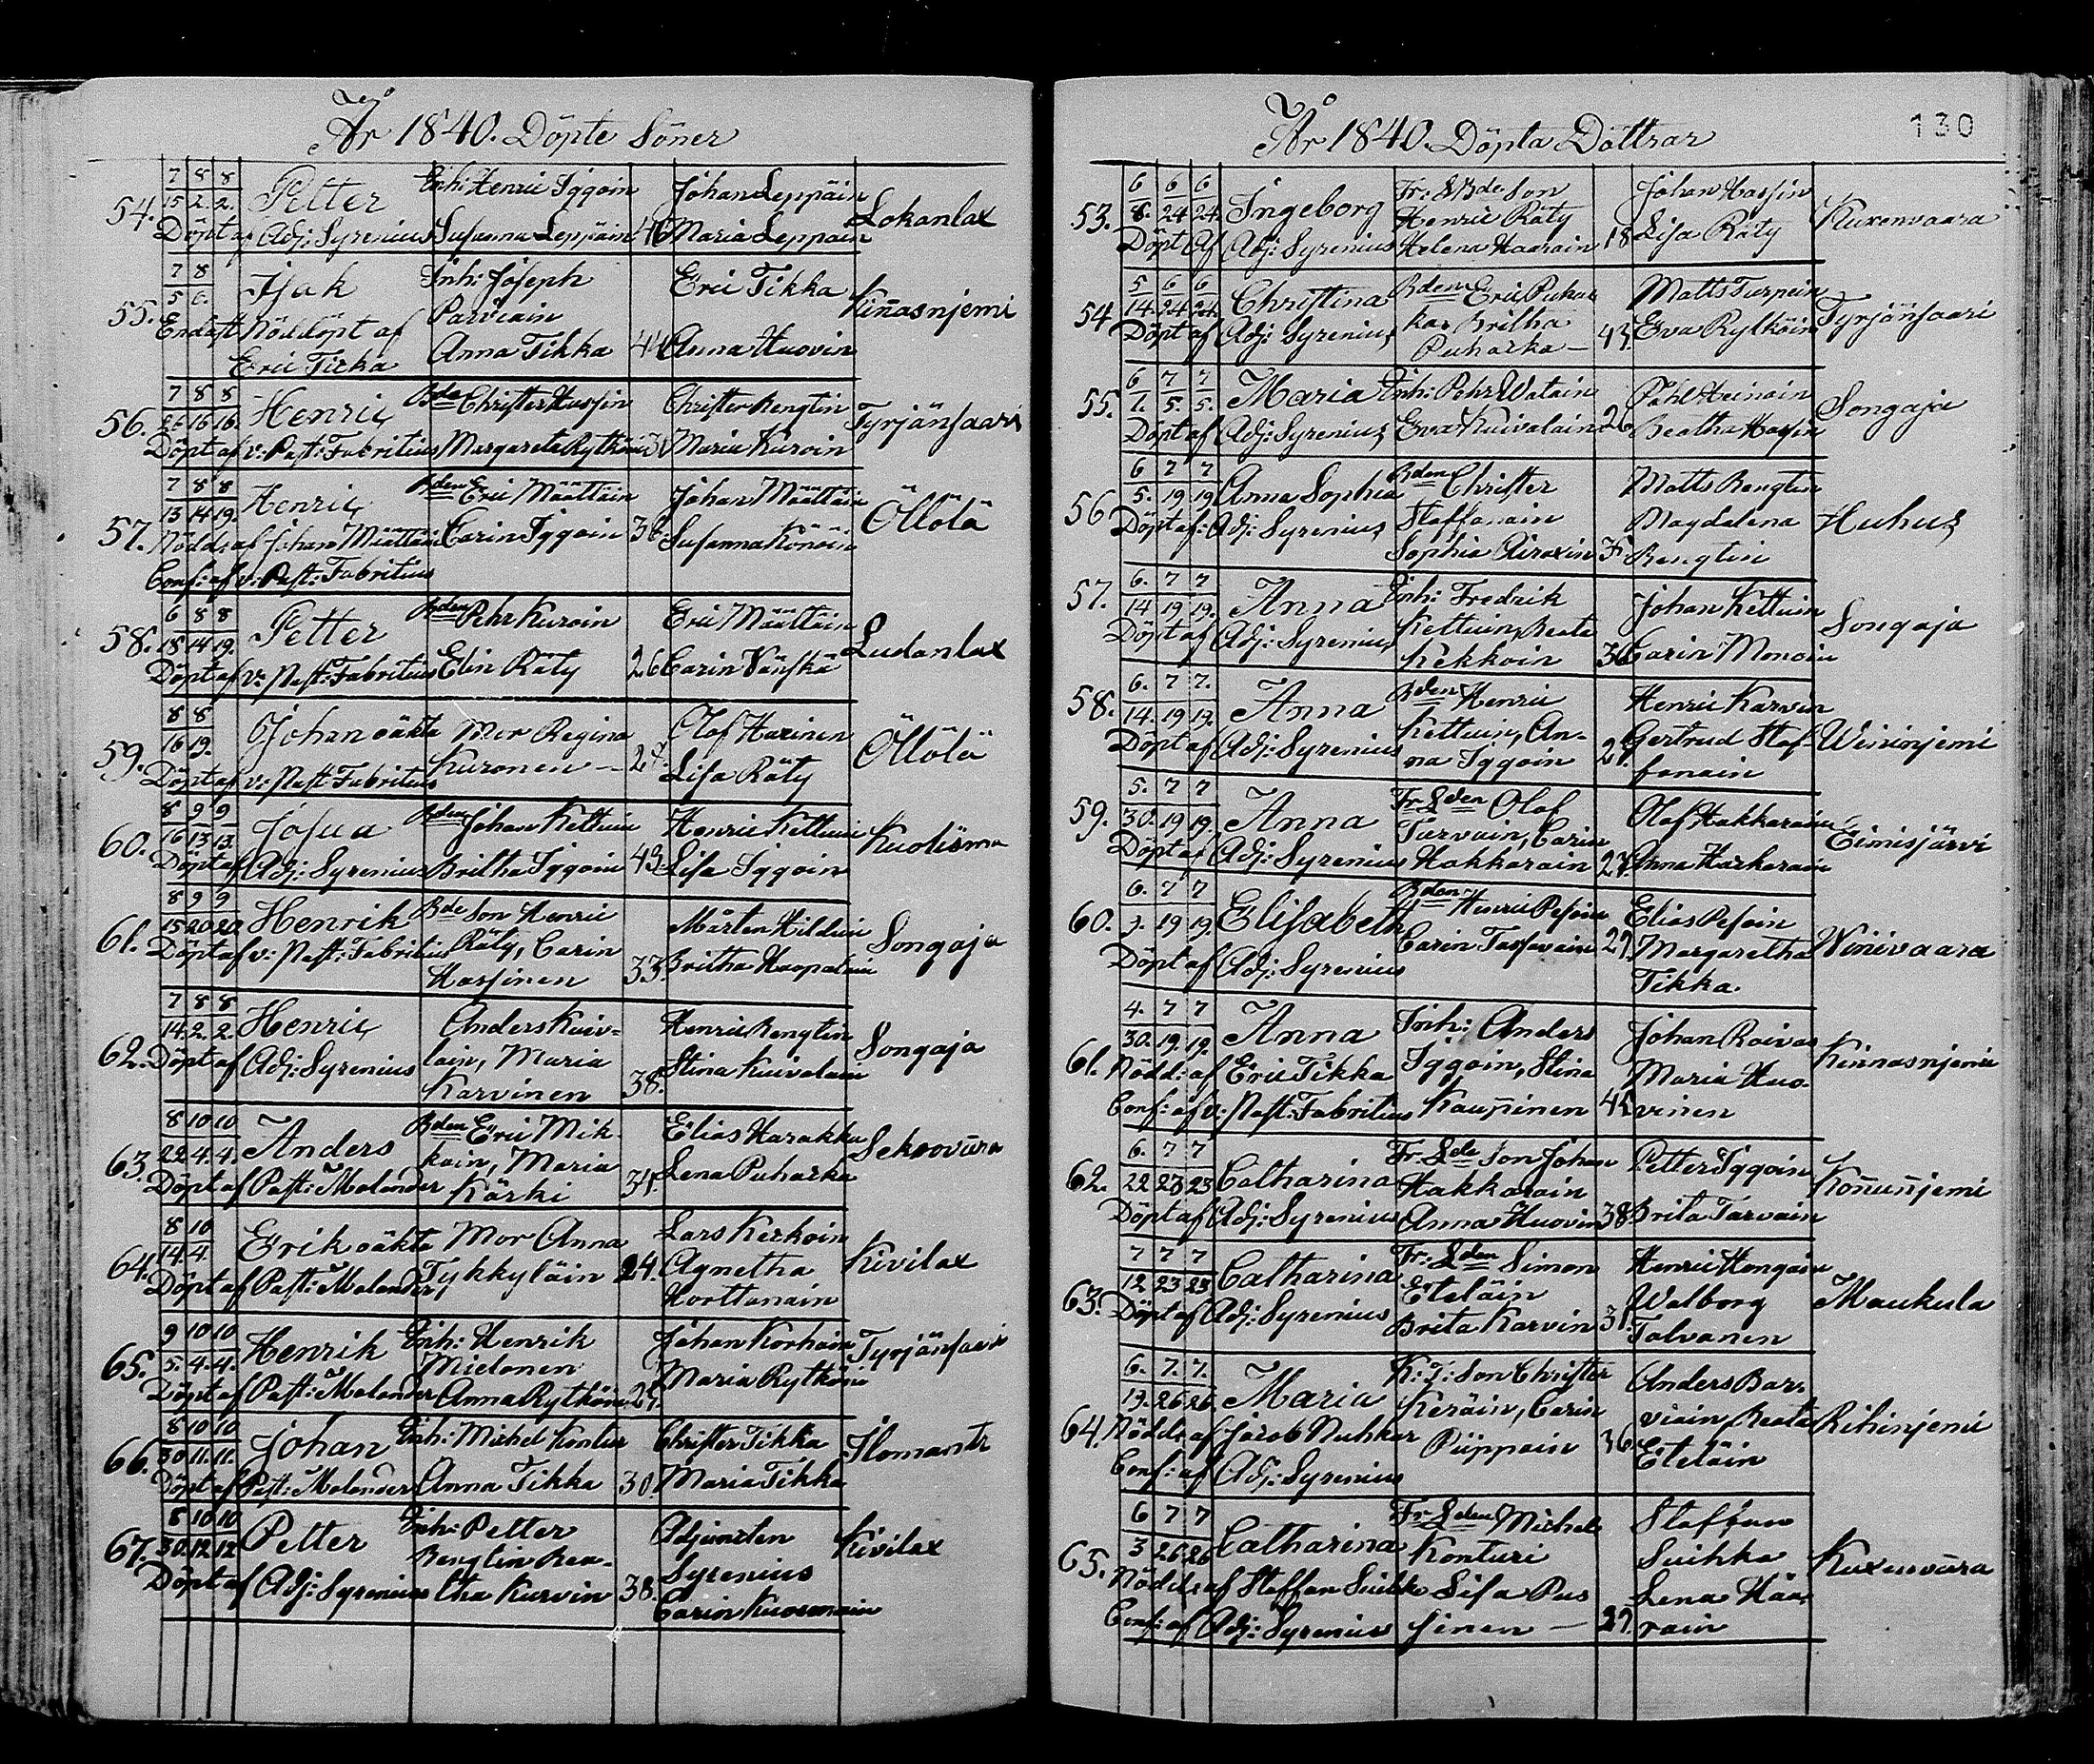 År 1840. Döpte Söner
7 8 8
54. 15 2. 2. Petter Inh: Henric Iggoin Johan Leppäin Lokanlax
Döpt af Adj: Syrenius Susanna Leppäin 40 Maria Leppäin
7 8
55. 5 6. Isak Inh: Joseph Eric Tikka Kin̄asnjemi
Endast Nöddöpt af Parviain
Eric Ticka Anna Tikka 44 Anna Huovin
7 8 8
56. 26 16 16. Henric Bde Christer Hassin Christer Rengtin Tyrjänsaari
Döpt af v: Past: Fabritius Margareta Rytköin Maria Kuroin
7 8 8
57. 13 14 19. Henric Bden Eric Määttäin Johan Määttäin Öllölä
Nödd: af Johan Määttäin Carin Iggoin 38. Susanna Könöin
Conf: af v: Past: Fabritius
6 8 8
58. 18 14 19. Petter Bden Pehr Kuroin Eric Määttäin Ludanlax
Döpt af v: Past: Fabritius Elin Räty 26 Carin Vänskä
8 8
59. 16 19. Johan oäkta Mor Regina Olof Harinen Öllölä
Döpt af v: Past: Fabritius Kuronen — 24. Lisa Räty
8 9 9
60. 16 13 13. Josua Bden Johan Kettuin Henric Kettuin Kuolisma
Döpt af Adj: Syrenius Britha Iggoin 43 Lisa Iggoin
8 9 9
61. 15 20 20 Henrik Bde Son Henric Mårten Hilduin Songaja
Döpt af v: Past: Fabritius Räty, Carin Britha Haapalain
Hassinen 33.
7 8 8
62. 14. 2. 2. Henric Anders Kuiv= Henric Rengtin Songaja
Döpt af Adj: Syrenius lain, Maria Stina Kuivalain
Karvinen 38.
8 10 10
63. 22 4. 4. Anders Bden Eric Mik= Elias Harakka Sekoovāra
Döpt af Past: Molander kain, Maria Lena Puharka
Kärki 34.
8 10
64. 14 4. Erik oäkta Mor Anna Lars Kerkoin Kivilax
Döpt af Past: Molander Tykkyläin 24. Agnetha
Horttanain
9 10 10
65. 5. 4. 4. Henrik Inh: Henrik Johan Korhoin Tyrjänsaari
Mielonen Maria Rytköin
Döpt af Past: Molander Anna Rytköin 27.
8 10 10
66. 30 11. 11. Johan Inh: Michel Kontur Christer Tikka Ilomants
Döpt af Past: Molander Anna Tikka 30. Maria Tikka
8 10 10
67. 30 12 12 Petter Inh: Petter Adjuncten Kivilax
Rengtin Bea= Syrenius
Döpt af Adj: Syrenius tha Kurvin 38. Carin Kuosmain
År 1840. Döpta Döttrar 130
6 6 6
53. 8. 24 24. Ingeborg Fr: L Bde Son Johan Hassin Kuxenvaara
Henric Räty Lisa Räty
Döpt af Adj: Syrenius Helena Haarain 18
5 6 6
54 14. 24 24. Christina Bden Eric Puhar Matts Turpein Tyrjänsaari
Döpt af Adj: Syrenius ka, Britha Eva Rytköin
Puharka — 43.
6 7 7
55. 1. 5. 5. Maria Inh: Pehr Watain Påhl Heinoin Songaja
Döpt af Adj: Syrenius Eva Kuivalain 26 Beatha Hassin
6 7 7
56 5. 19 19. Anna Sophia Bden Christer Matts Rengtin Huhus
Döpt af: Adj: Syrenius Staffanain Magdalena
Sophia Airaxin Rengtin
6. 7 7
57. 14 19 19. Anna Inh: Fredrik Johan Kettuin Songaja
Döpt af Adj: Syrenius Kettuin, Beata Carin Monoin
Kekkoin 36
6. 7 7.
58. 14. 19 19. Anna Bden Henric Henric Karvin Weininjemi
Döpt af Adj: Syrenius Kettuin, An= Gertrud Staf=
na Iggoin 27. fanain
5. 7 7
59. 30. 19 19. Anna Fr: Lden Olof Olof Hakkarain Eimisjärvi
Döpt af Adj: Syrenius Turvain, Carin Anna Harkarain
Hakkarain 27
6. 7 7
60. 9. 19 19. Elisabeth Bden Henric Pesoin Elias Pesoin Winivaara
Döpt af Adj: Syrenius Carin Tassavain 29. Margaretha
Tikka.
4. 7 7
61. 30. 19. 19. Anna Inh: Anders Johan Raivas Kinnasnjemi
Nödd: af Eric Tikka Iggoin, Stina Maria Huo-
Conf: af v: Past: Fabritius Kaupinen 45 vinen
6. 7 7
62. 22 23 23 Catharina Fr: Lde Son Johan Petter Iggoin Kon̄un̄jemi
Hakkarain Brita Tarvain
Döpt af Adj: Syrenius Anna Huovin 38
7 7 7
63. 12 23 23 Catharina Fr: Lden Simon Henric Hongain Maukula
Döpt af Adj: Syrenius Eteläin Walborg
Brita Karvin 31. Talvanen
6. 7. 7.
64. 19. 26 26 Maria K: T: Son Christer Anders Bar= Rihinjemi
Nödd: af Jacob Nuhkar Keräin, Carin viain, Beata
Conf: af Adj: Syrenius Piippoin 36 Eteläin
6 7 7
65. 3 26 26 Catharina Fr: Lden Michel Staffan Kuxenvāra
Konturi Suihka
Nödd: af Staffan Suihk Lisa Pus Lena Hää=
Conf: af Adj: Syrenius sinen — 29. rain